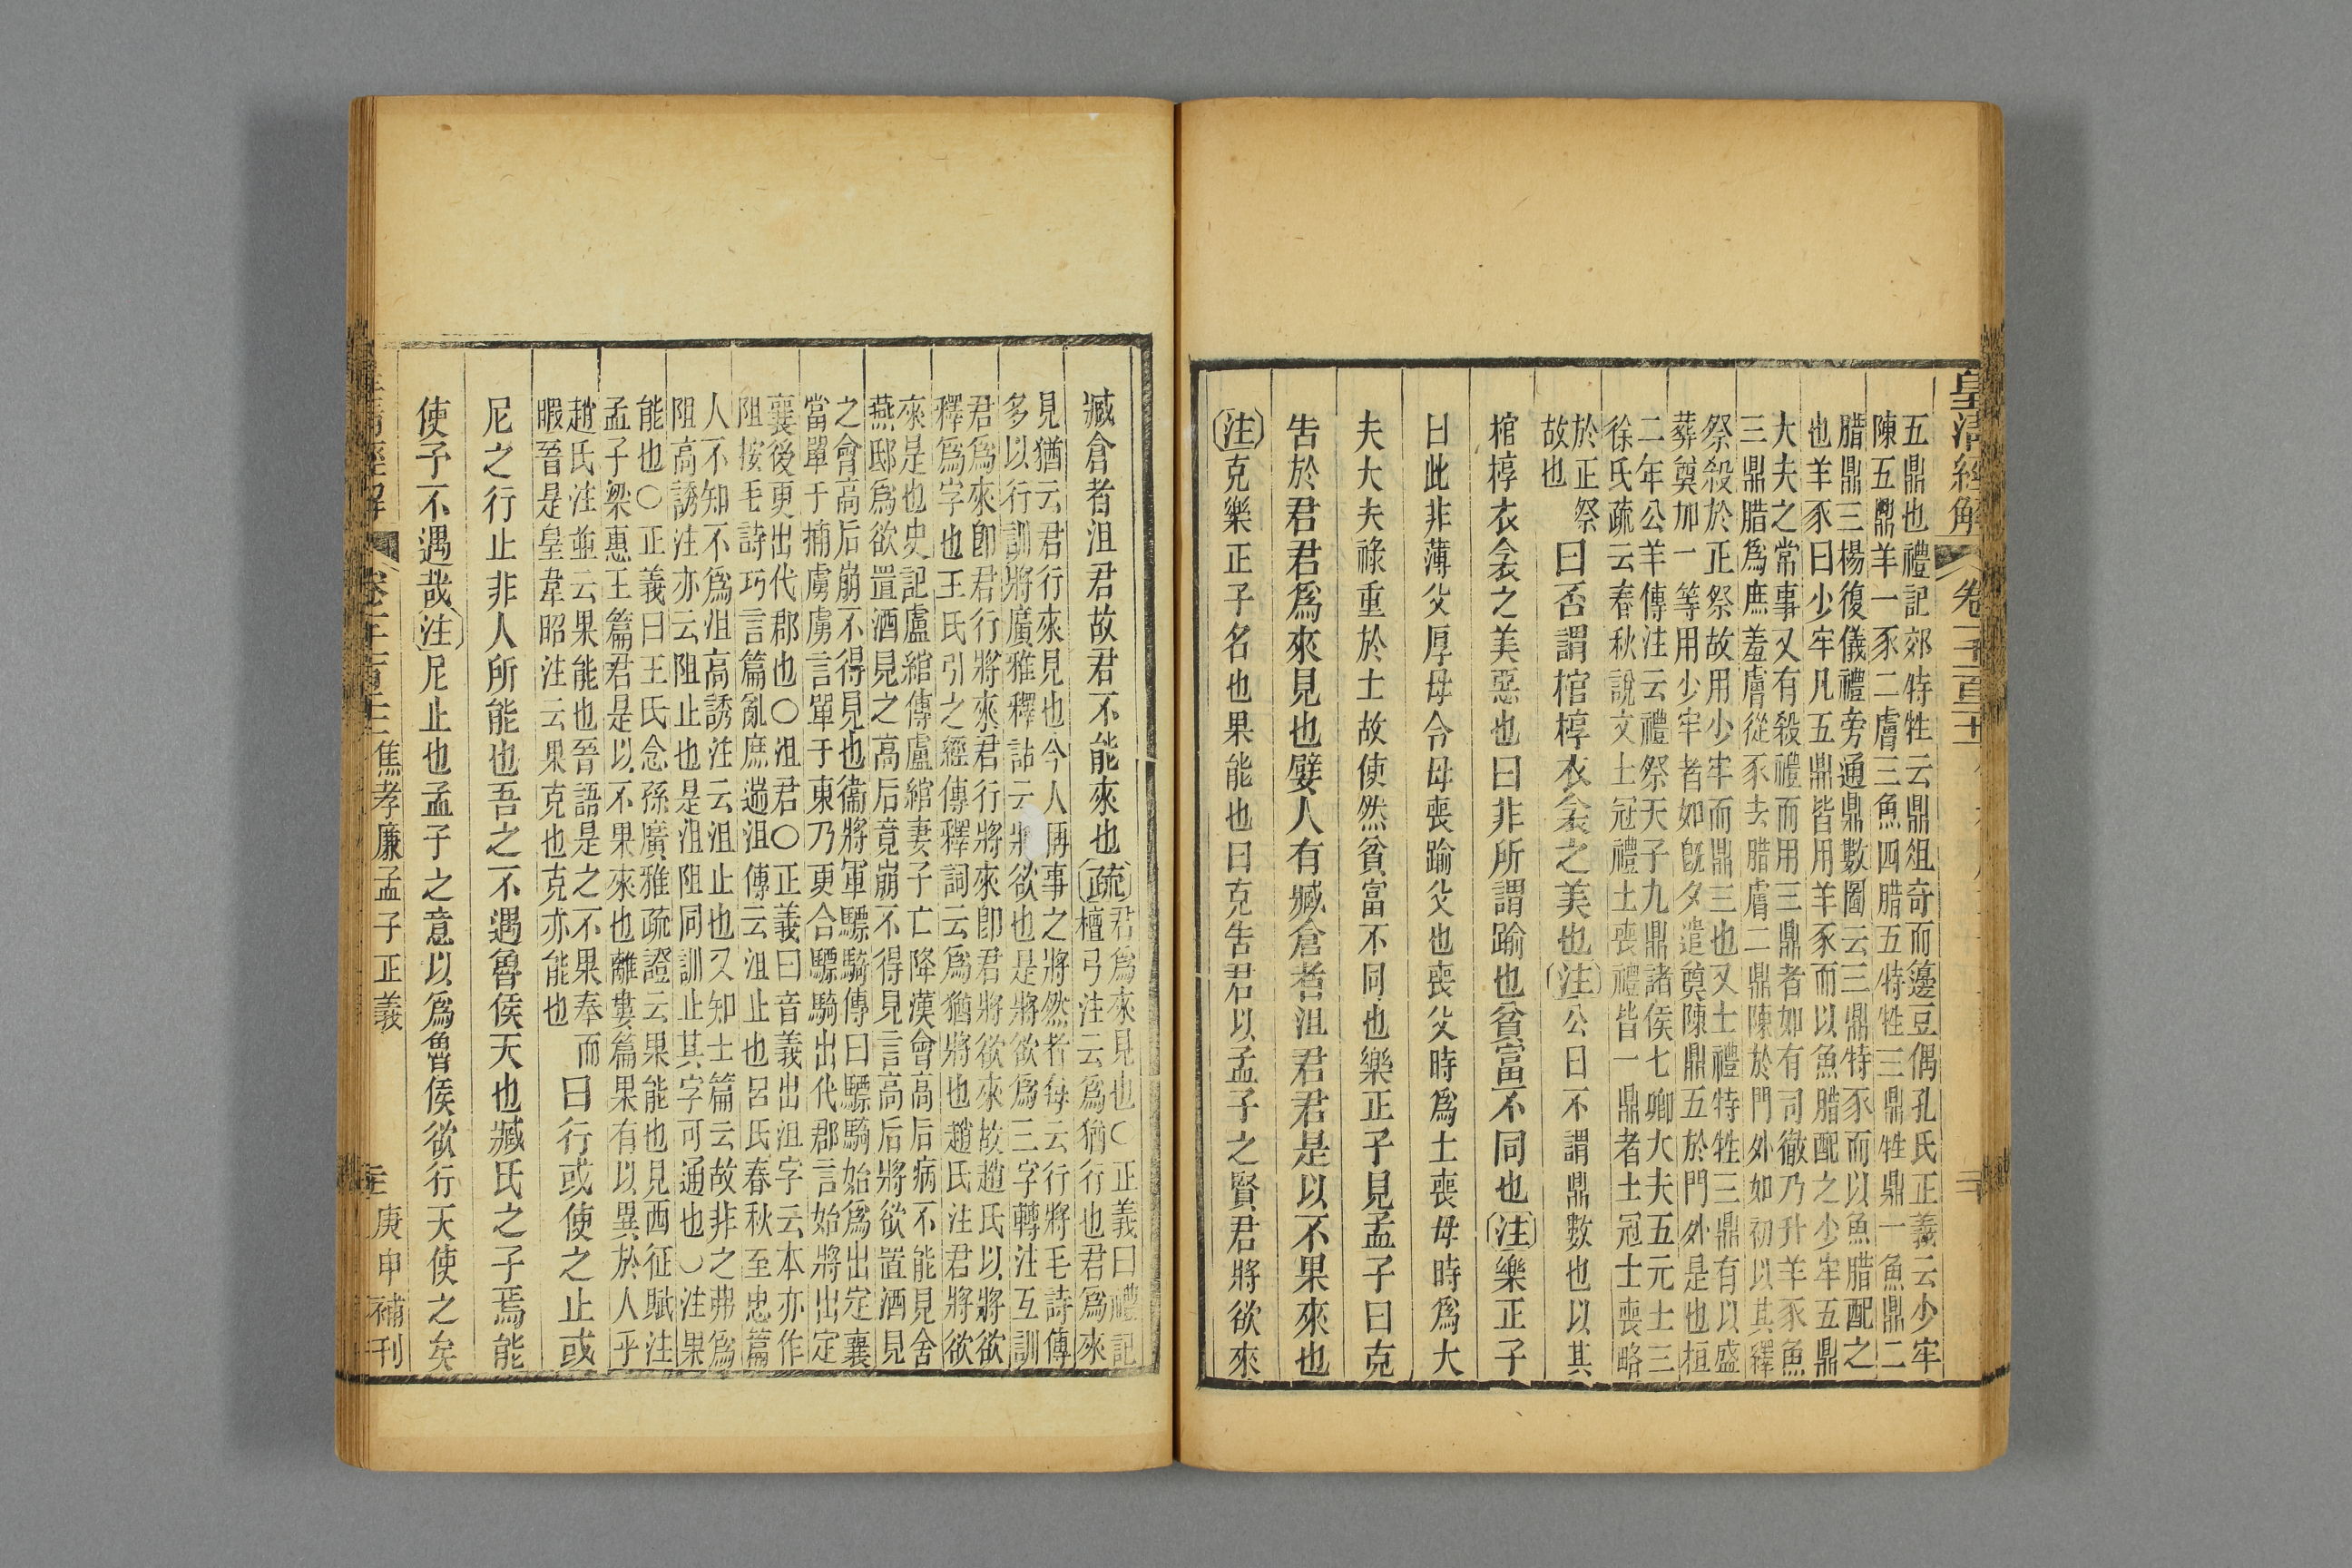 皇清經解
卷一千一百十
五鼎也禮記郊特牲云鼎俎奇而籩豆偶孔氏正義云少牢
陳五鼎羊一豕二膚三魚四腊五特牲三鼎牲鼎一魚鼎二
腊鼎三楊復儀禮旁通鼎數圖云三鼎特豕而以魚腊配之
也羊豕曰少牢凡五鼎皆用羊豕而以魚腊配之少牢五鼎
大夫之常事又有殺禮而用三鼎者如有司徹乃升羊豕魚
三鼎腊爲庶羞膚從豕去腊膚二鼎陳於門外如初以其繹
祭殺於正祭故用少牢而鼎三也又士禮特牲三鼎有以盛
葬奠加一等用少牢者如旣夕遣奠陳鼎五於門外是也桓
二年公羊傳注云禮祭天子九鼎諸侯七卿大夫五元士三
徐氏疏云春秋說文士冠禮士喪禮皆一鼎者士冠士喪略
於正祭
故也
曰否謂棺椁衣衾之美也注公曰不謂鼎數也以其
棺椁衣衾之美惡也曰非所謂踰也貧富不同也注樂正子
曰此非薄父厚母令母喪踰父也喪父時爲士喪母時爲大
夫大夫祿重於士故使然貧富不同也樂正子見孟子曰克
告於君君爲來見也嬖人有臧倉者沮君君是以不果來也
注克樂正子名也果能也曰克告君以孟子之賢君將欲來
臧倉者沮君故君不能來也疏
君爲來見也○正義曰禮記
檀弓注云爲猶行也君爲來
見猶云君行來見也今人稱事之將然者每云行將毛詩傳
多以行訓將廣雅釋詁云將欲也是將欲爲三字轉注互訓
君爲來卽君行將來君行將來卽君將欲來故趙氏以將欲
釋爲字也王氏引之經傳釋詞云爲猶將也趙氏注君將欲
來是也史記盧綰傳盧綰妻子亡降漢會高后病不能見舍
燕邸爲欲置酒見之高后竟崩不得見言高后將欲置酒見
之會高后崩不得見也衞將軍驃騎傳曰驃騎始爲出定襄
當單于捕虜虜言單于東乃更合驃騎出代郡言始將出定
襄後更出代郡也○沮君○正義曰音義出沮字云本亦作
阻按毛詩巧言篇亂庶遄沮傳云沮止也呂氏春秋至忠篇
人不知不爲沮高誘注云沮止也又知士篇云故非之弗爲
阻高誘注亦云阻止也是沮阻同訓止其字可通也○注果
能也○正義曰王氏念孫廣雅疏證云果能也見西征賦注
孟子梁惠王篇君是以不果來也離婁篇果有以異於人乎
趙氏注並云果能也晉語是之不果奉而
暇晉是皇韋昭注云果克也克亦能也
曰行或使之止或
尼之行止非人所能也吾之不遇魯侯天也臧氏之子焉能
使予不遇哉注尼止也孟子之意以爲魯侯欲行天使之矣
皇清經解
焦孝廉孟子正義
庚申補刊